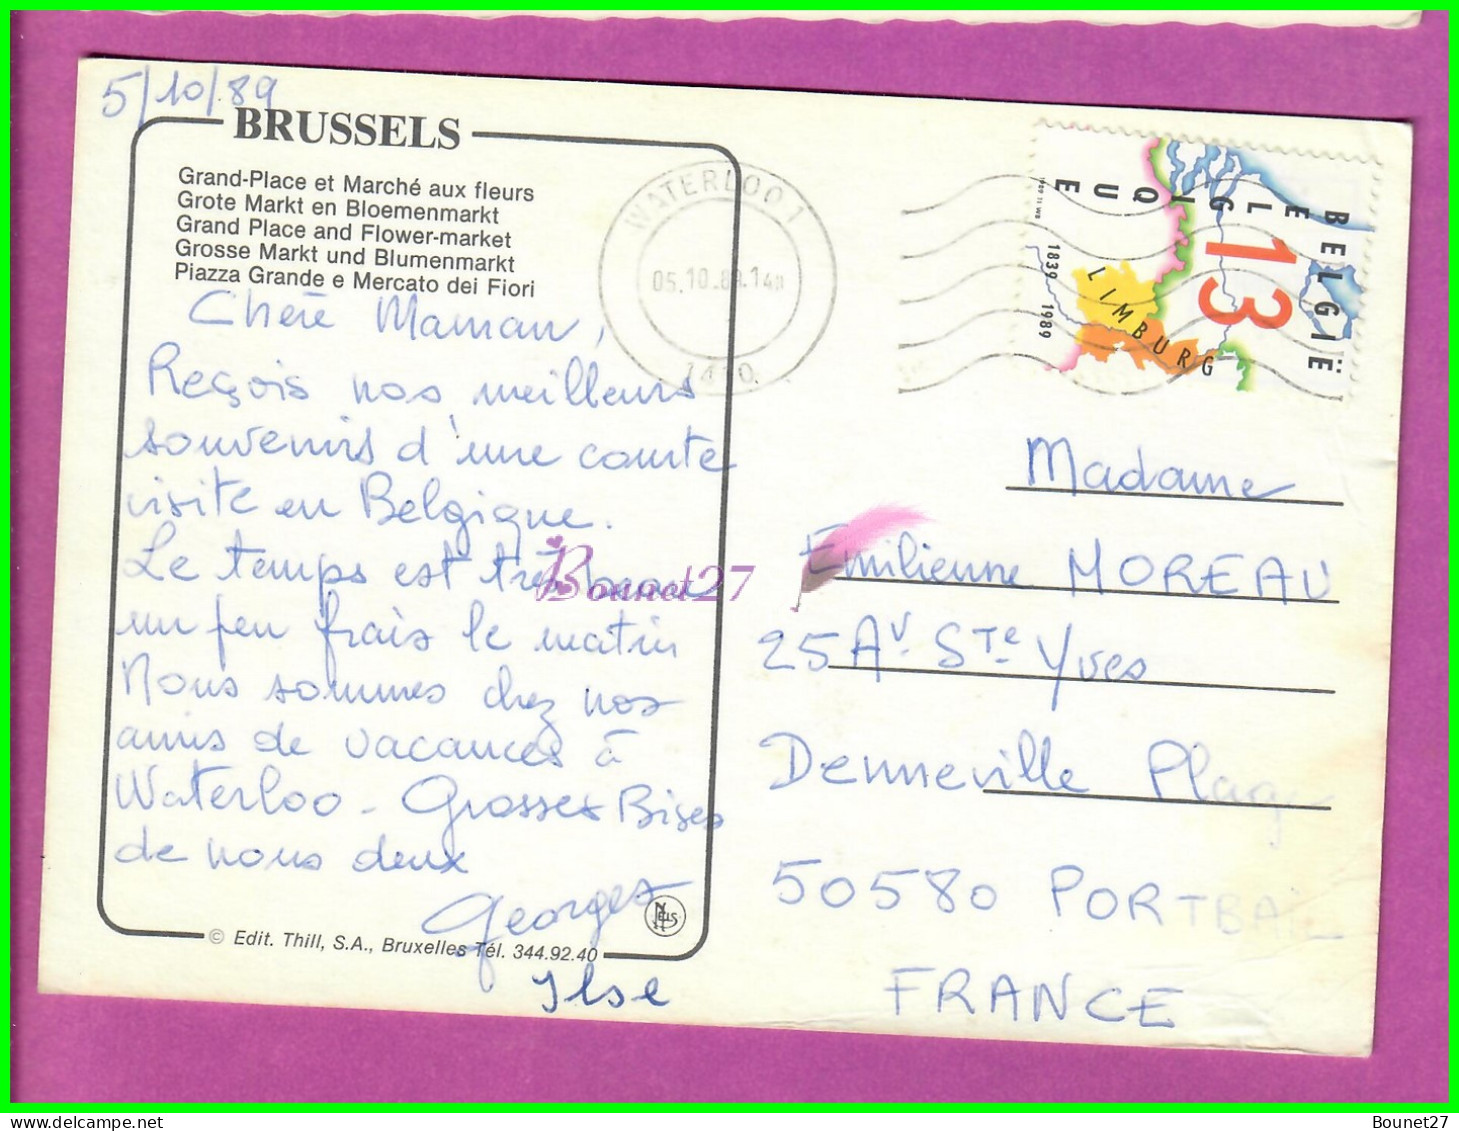 5/10/89
BRUSSELS
Grand-Place et Marché aux fleurs
Grote Markt en Bloemenmarkt
Grand Place and Flower-market
Grosse Markt und Blumenmarkt
Piazza Grande e Mercato dei Fiori
Chère Maman,
Reçois nos meilleurs
souvenirs d'une courte
visite en Belgique.
Le temps est très beau
un peu frais le matin
Nous sommes chez nos
amis de vacances à
Waterloo - Grosses Bises
de nous deux
Georges
Ilse
NELS
© Edit. Thill, S.A., Bruxelles Tél. 344.92.40
WATERLOO 1
05.10.89.14H
1410
BELGIË
BELGIQUE
13
LIMBURG
1839 1989
Madame
Emilienne MOREAU
25 Av Ste Yves
Denneville Plage
50580 PORTBAIL
FRANCE
Bounet27
Bounet27